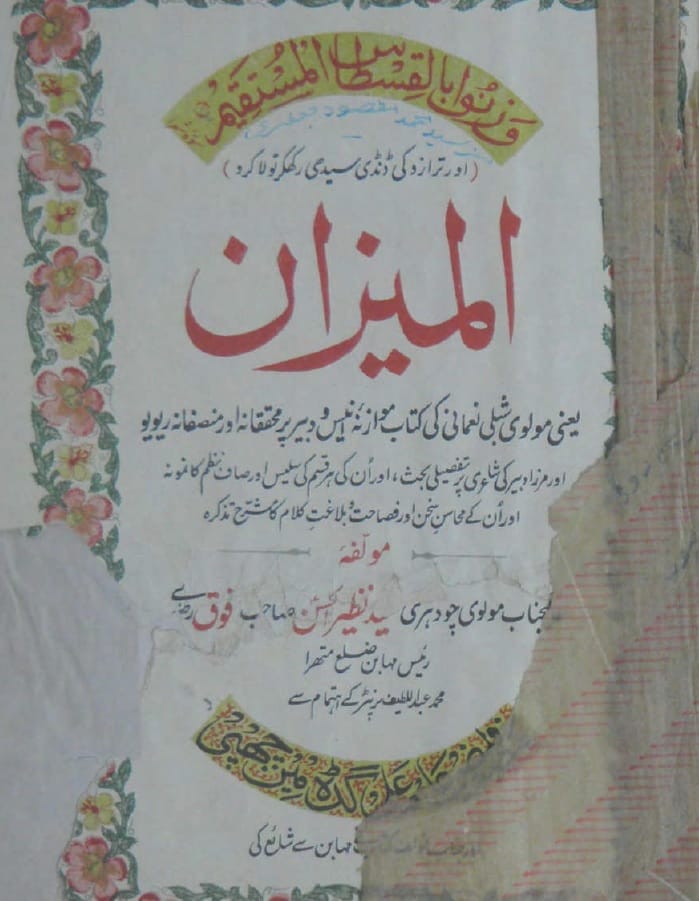 وَزِنُوا بِالْقِسْطَاسِ الْمُسْتَقِيْمِ
سید محمد مقصود جعفری
(اور ترازو کی ڈنڈی سیدھی رکھکر تولا کرو)
المیزان
یعنی مولوی شبلی نعمانی کی کتاب موازنۂ انیس و دبیر پر محققانہ اور منصفانہ ریویو
اور مرزا دبیر کی شاعری پر تفصیلی بحث، اور اُن کی ہر قسم کی سلیس اور صاف نظم کا نمونہ
اور اُن کے محاسنِ سخن اور فصاحت و بلاغتِ کلام کا مُشرّح تذکرہ
مولّفۂ
جناب مولوی چودہری سید نظیر الحسن صاحب فوق رضوی
رئیس مہابن ضلع متھرا
محمد عبداللطیف پرنٹر کے اہتمام سے
علی گڈہ میں چھپی
مہابن سے شائع کی